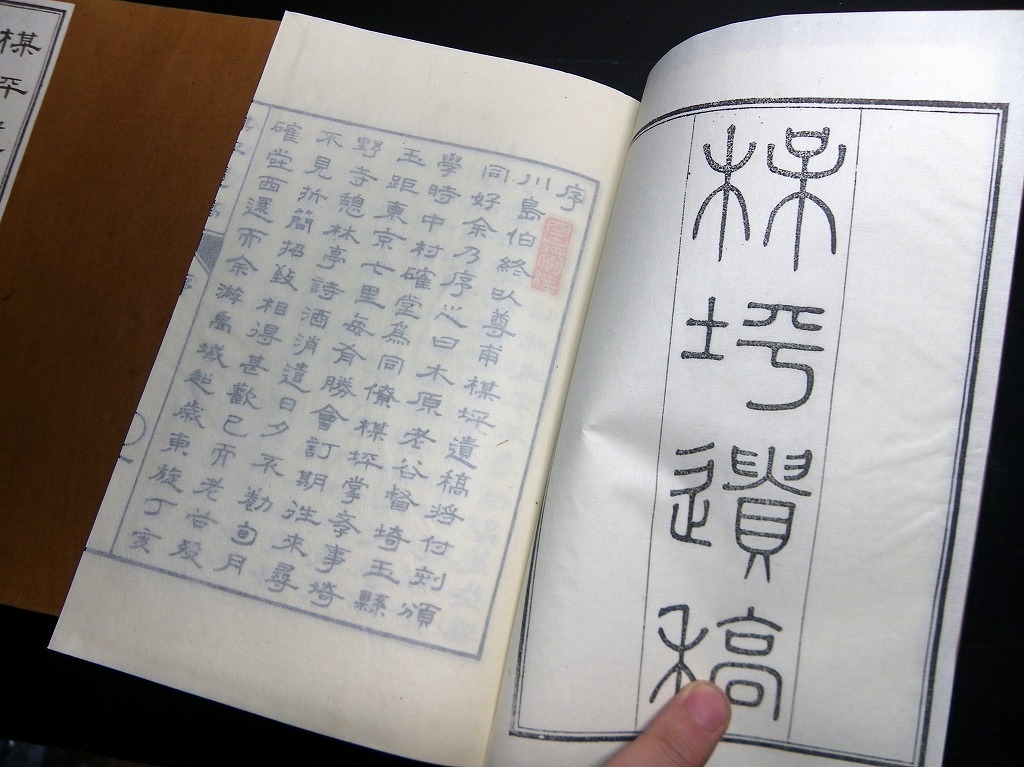 楳坪遺稿
序
川島伯終以尊甫楳坪遺稿將付刻頒
同好余乃序之曰木原老谷督埼玉縣
學時中村確堂爲同僚楳坪掌斈事埼
玉距東京七里每有勝會訂期往來尋
野寺憩林亭詩酒消遣日夕不勌旬月
不見折簡招致相得甚歡已而老谷歿
確堂西還而余游禹域越歲東旋丁亥
楳坪